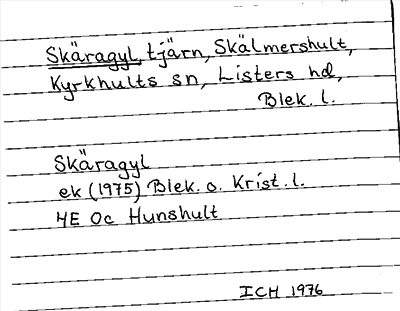 Skäragyl, tjärn, Skälmershult,
Kyrkhults sn, Listers hd,
Blek. l.
Skäragyl
ek (1975) Blek. o. Krist. l.
4E Oc Hunshult
ICH 1976